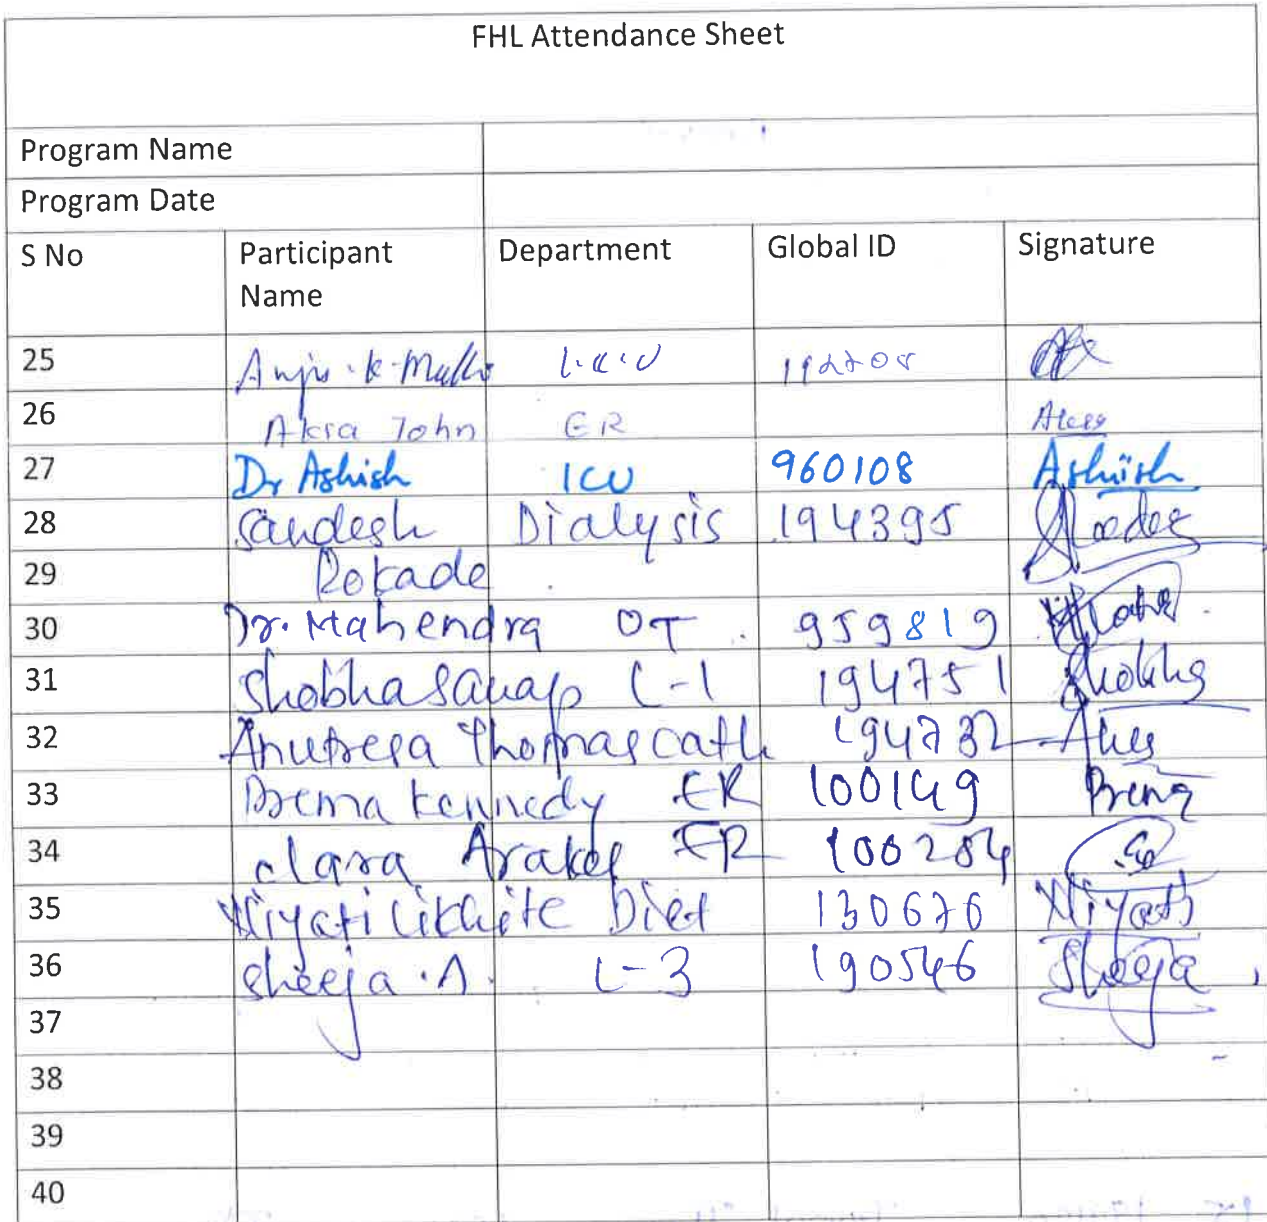 FHL Attendance Sheet
Program Name
Program Date
S No Participant Name Department Global ID Signature
25 Anju. K. I.C.U
26 ER
27 Dr Ashish ICU 960108 Ashish
28 Sandesh Dialysis 194395
29 Rokade
30 Dr. Mahendra OT 959819
31 Shobha Sanap L-1 194751 Shobha
32 Thomas cath 194732
33 Prema Kennedy ER 100149 Prema
34 Clara ER 100284
35 Niyati Likhite Diet 130676 Niyati
36 Sheeja .A. L-3 190546 Sheeja
37
38
39
40